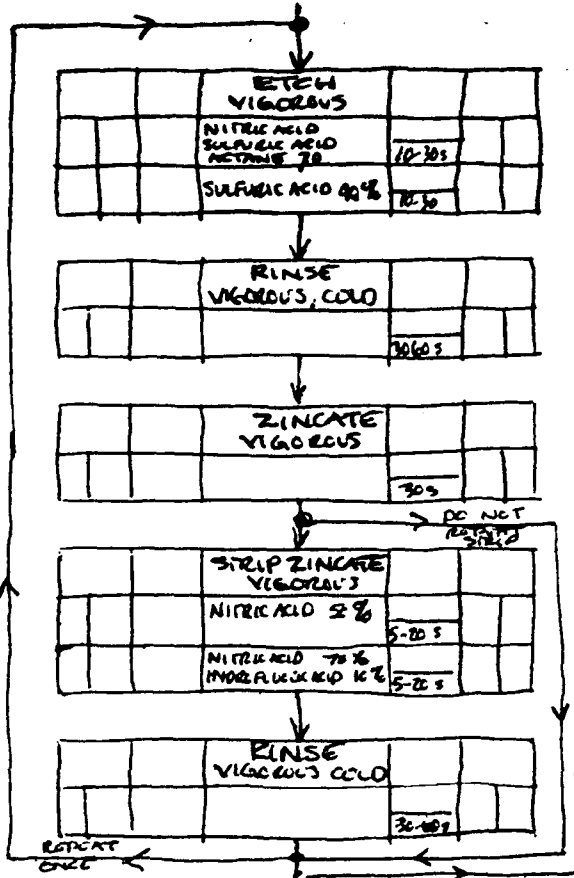 ETCH
VIGOROUS
NITRIC ACID
SULFURIC ACID
10-30s
SULFURIC ACID 90%
10-30
RINSE
VIGOROUS, COLD
30-60s
ZINCATE
VIGOROUS
30s
DO NOT
STRIP
STRIP ZINCATE
VIGOROUS
NITRIC ACID
5-20 s
NITRIC ACID
5-20 s
RINSE
VIGOROUS COLD
30-60s
REPEAT
ONCE